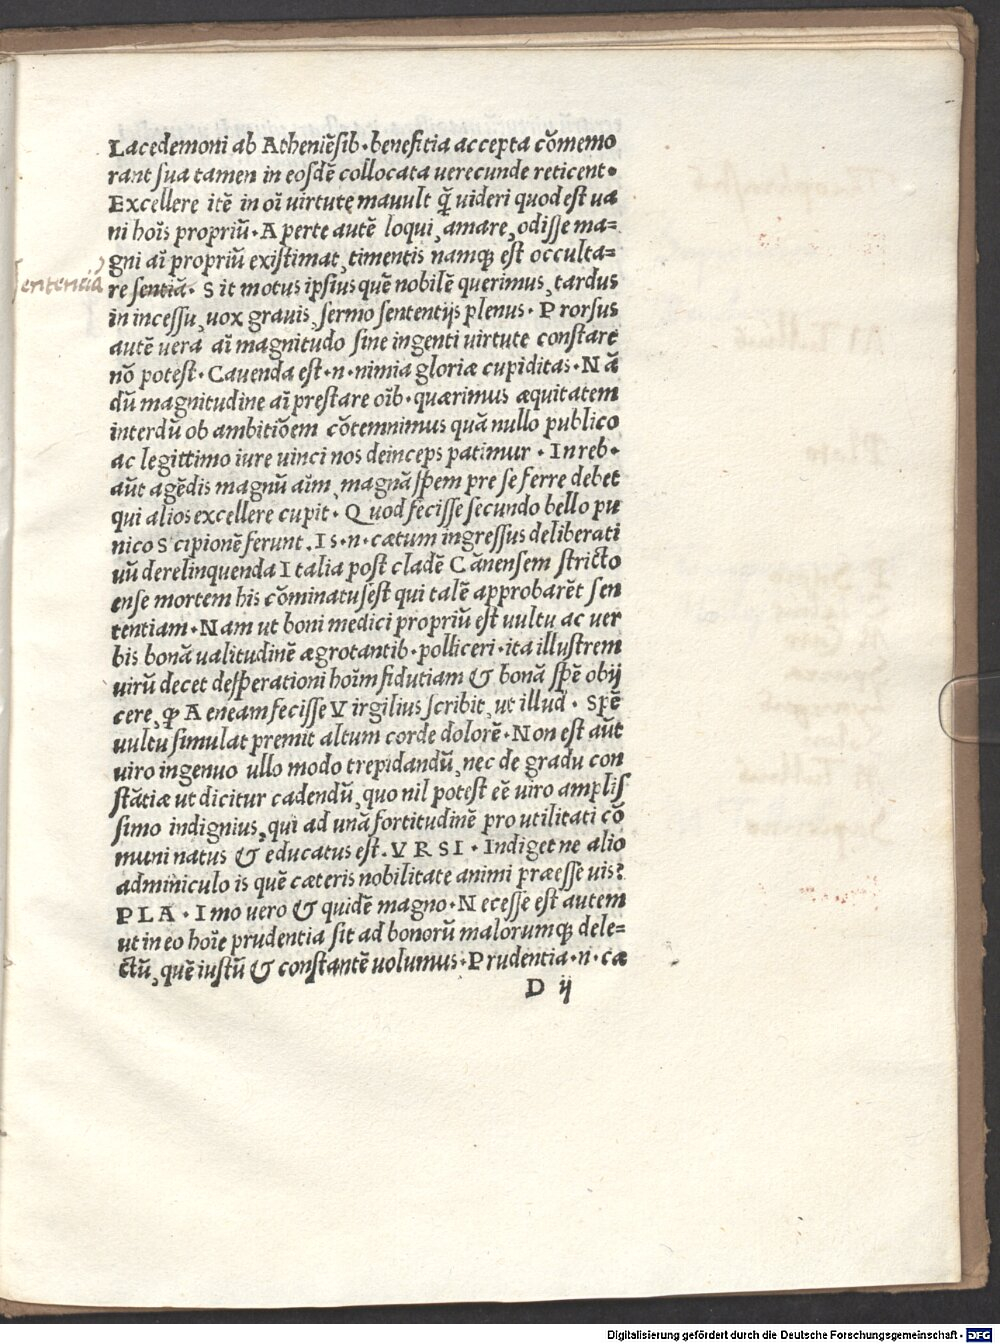 Lacedemoni ab Atheniẽsib· benefitia accepta cõmemo
rant sua tamen in eosdẽ collocata uerecunde reticent·
Excellere itẽ in oĩ uirtute mauult q̃ uideri quod est ua
ni hoĩs propriũ· Aperte autẽ loqui, amare, odisse ma=
gni aĩ propriũ existimat, timentis namq; est occulta=
sentencia
re sentiã· Sit motus ipsius quẽ nobilẽ querimus, tardus
in incessu, uox grauis, sermo sententijs plenus· Prorsus
autẽ uera aĩ magnitudo sine ingenti uirtute constare
nõ potest· Cauenda est·n·nimia gloriæ cupiditas· Nã
dũ magnitudine aĩ prestare oĩb· quærimus æquitatem
interdũ ob ambitiõem cõtemnimus quã nullo publico
ac legittimo iure uinci nos deinceps patimur· In reb·
aũt agẽdis magnũ aĩm, magnã spem pre se ferre debet
qui alios excellere cupit· Quod fecisse secundo bello pu
nico Scipionẽ ferunt. Is·n·cætum ingressus deliberati
uũ derelinquenda Italia post cladẽ Cãnensem stricto
ense mortem his cõminatus est qui talẽ approbarẽt sen
tentiam· Nam ut boni medici propriũ est uultu ac uer
bis bonã ualitudinẽ ægrotantib· polliceri· ita illustrem
uirũ decet desperationi hoĩm fidutiam & bonã spẽ obij
cere, ꝙ Aeneam fecisse Virgilius scribit, ut illud· Spẽ
uultu simulat premit altum corde dolorẽ· Non est aũt
uiro ingenuo ullo modo trepidandũ, nec de gradu con
stãtiæ ut dicitur cadendũ, quo nil potest eẽ uiro amplis
simo indignius, qui ad unã fortitudinẽ pro utilitati cõ
muni natus & educatus est. VRSI· Indiget ne alio
adminiculo is quẽ cæteris nobilitate animi præesse uis?
PLA· Imo uero & quidẽ magno· Necesse est autem
ut in eo hoĩe prudentia sit ad bonorũ malorumq; dele=
ctũ, quẽ iustũ & constantẽ uolumus· Prudentia·n·cæ
D ij
Digitalisierung gefördert durch die Deutsche Forschungsgemeinschaft - DFG